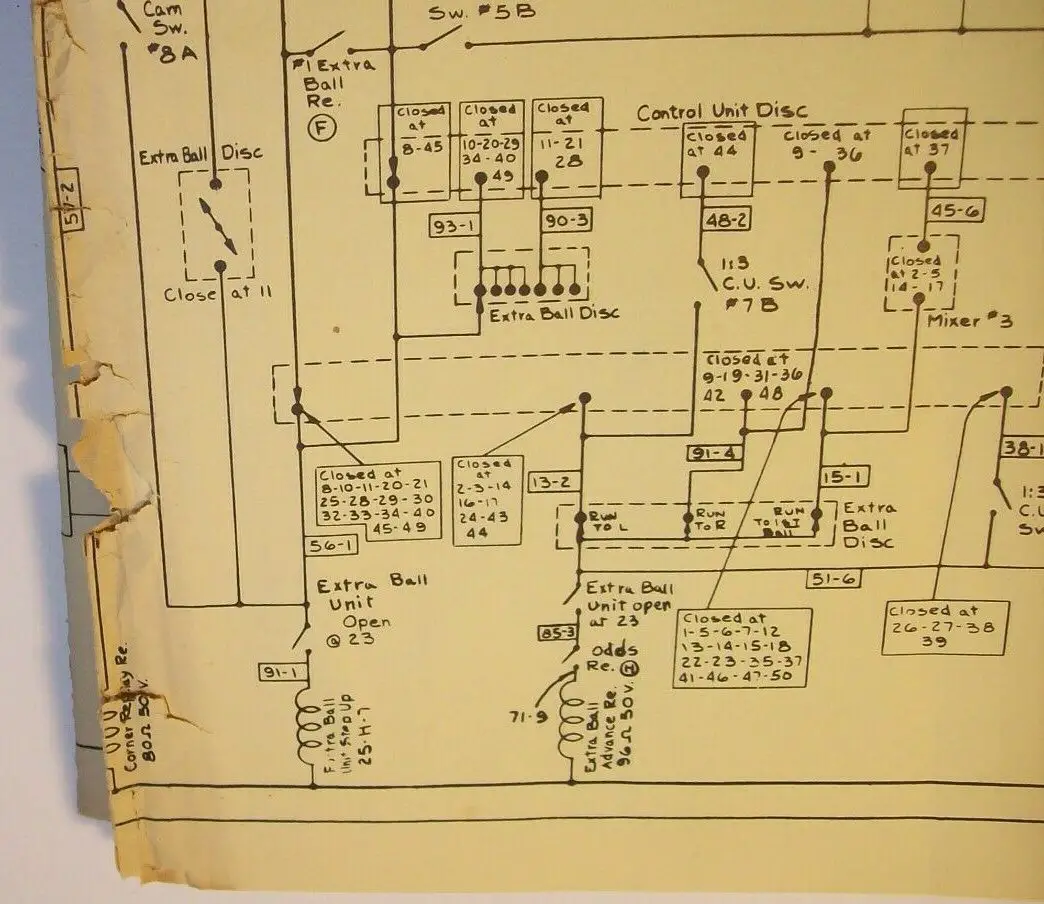 Cam
Sw.
#8A
Sw. #5B
#1 Extra
Ball
Re.
F
Closed
at
8-45
Closed
at
10-20-29
34-40
49
Closed
at
11-21
28
Control Unit Disc
Closed
at 44
Closed at
9- 36
Closed
at 37
Extra Ball Disc
Close at 11
57-2
93-1
90-3
48-2
45-6
Extra Ball Disc
1:3
C.U. Sw.
#7B
Closed
at 2-5
14-17
Mixer #3
Closed at
9-19-31-36
42 48
Closed at
8-10-11-20-21
25-28-29-30
32-33-34-40
45-49
Closed
at
2-3-14
16-17
24-43
44
13-2
91-4
15-1
38-1
RUN
TO L
RUN
TO R
RUN
TO 1ST
BALL
Extra
Ball
Disc
1:3
C.U
Sw
56-1
51-6
Extra Ball
Unit
Open
@ 23
Extra Ball
Unit open
at 23
85-3
odds
Re. H
Closed at
1-5-6-7-12
13-14-15-18
22-23-35-37
41-46-47-50
Closed at
26-27-38
39
91-1
71-9
Corner Replay Re.
80Ω 50V.
Extra Ball
Unit Step Up
25-H-7
Extra Ball
Advance Re.
96Ω 50V.